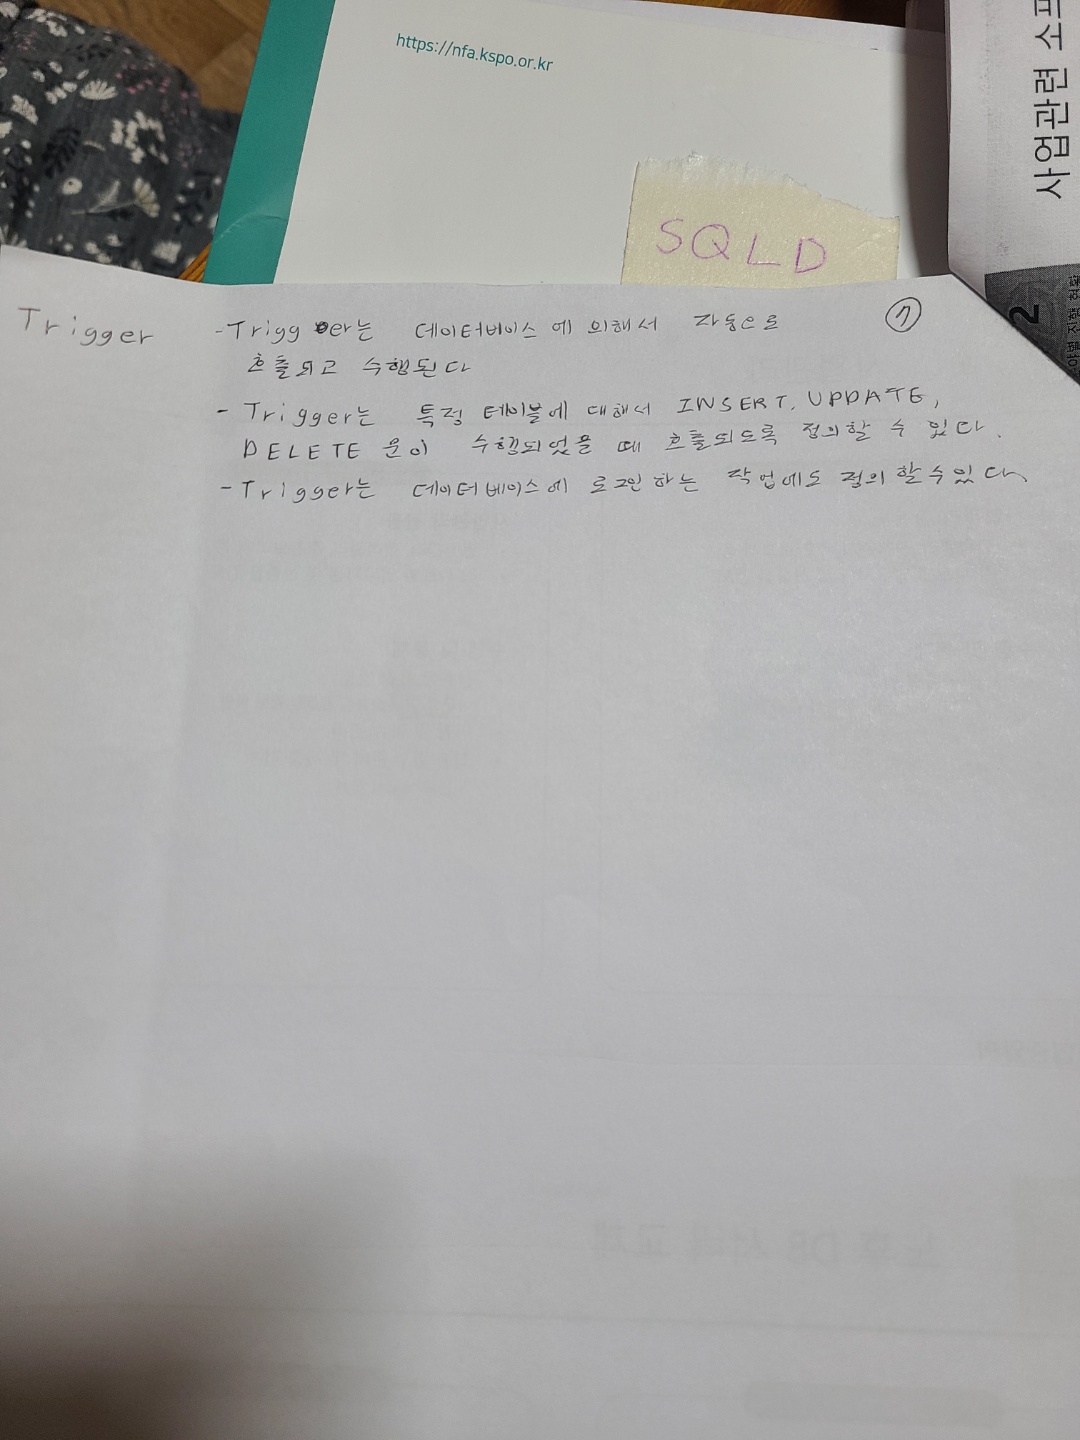 https://nfa.kspo.or.kr
사업관련 소프
SQLD
2
Trigger
⑦
- Trigger는 데이터베이스에 의해서 자동으로
호출되고 수행된다
- Trigger는 특정 테이블에 대해서 INSERT, UPDATE,
DELETE 문이 수행되었을 때 호출되도록 정의할 수 있다.
- Trigger는 데이터베이스에 로그인하는 작업에도 정의할 수 있다.